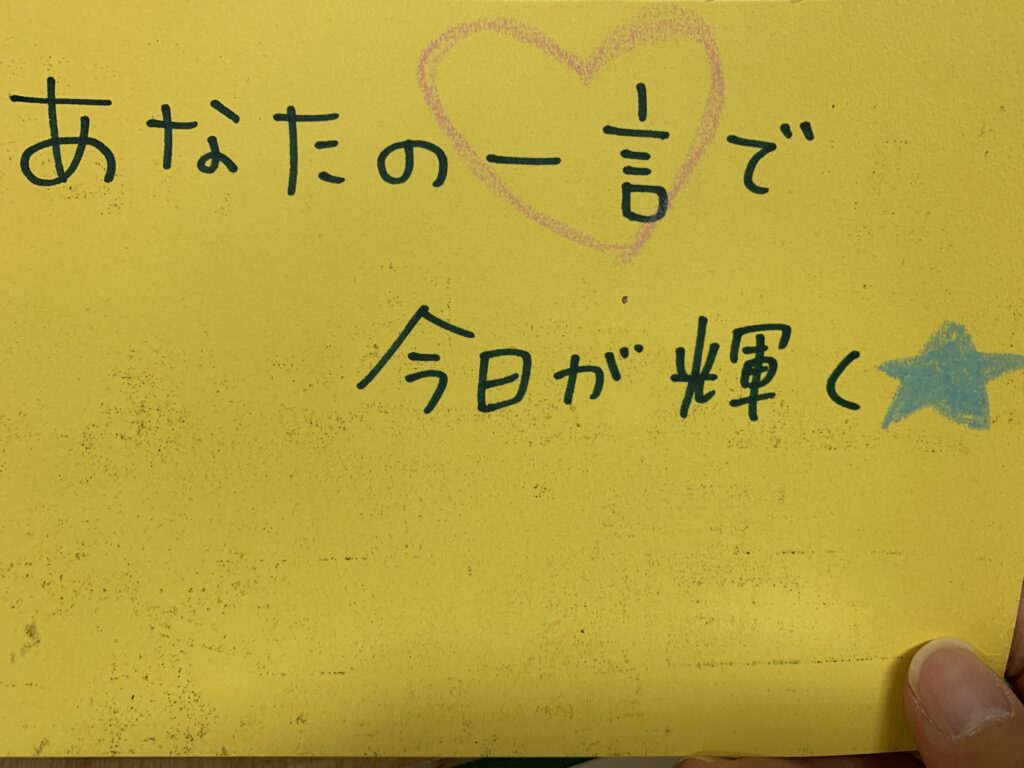 あなたの一言で
今日が輝く